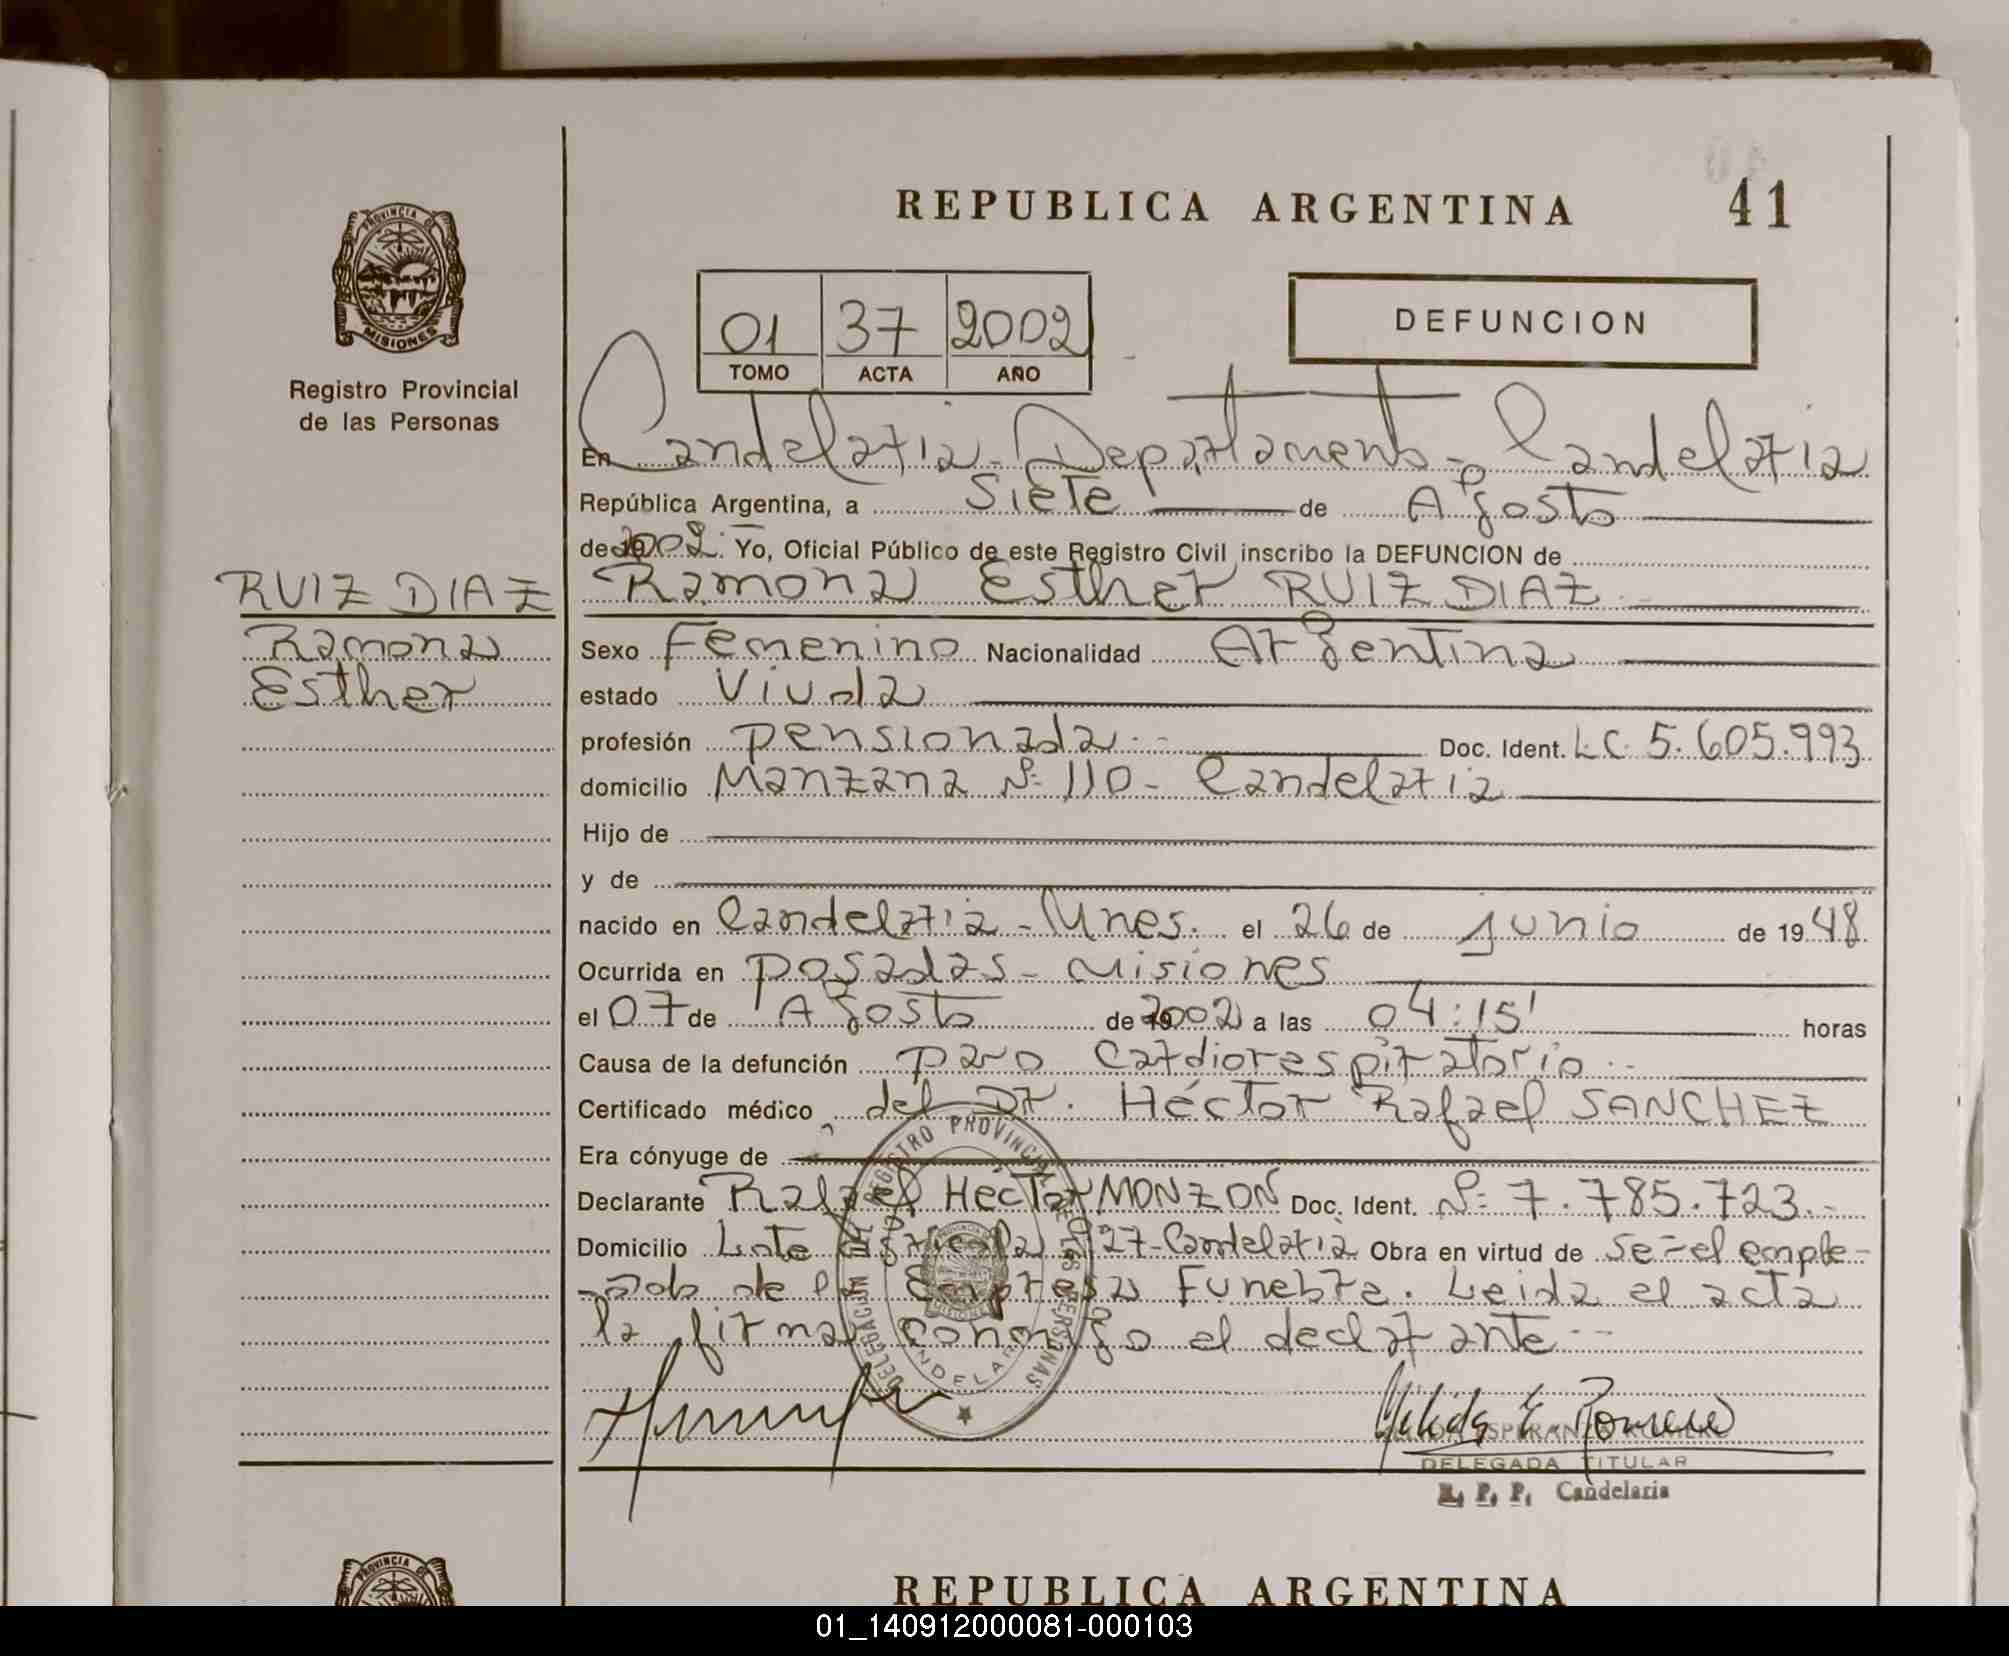 REPUBLICA ARGENTINA 41
PROVINCIA DE
MISIONES
Registro Provincial
de las Personas
01 37 2002
TOMO ACTA AÑO
DEFUNCION
En Candelaria - Departamento - Candelaria
República Argentina, a Siete de Agosto
de 2002. Yo, Oficial Público de este Registro Civil inscribo la DEFUNCION de
RUIZ DIAZ
Ramona
Esther
Ramona Esther RUIZ DIAZ
Sexo Femenino Nacionalidad Argentina
estado Viuda
profesión pensionada.- Doc. Ident. L.C. 5.605.993
domicilio Manzana Nº 110 - Candelaria
Hijo de
y de
nacido en Candelaria - Mnes. el 26 de junio de 1948
Ocurrida en Posadas - Misiones
el 07 de Agosto de 2002 a las 04:15' horas
Causa de la defunción paro cardiorespiratorio.-
Certificado médico del Dr. Héctor Rafael SANCHEZ
Era cónyuge de
Declarante Rafael Hector MONZON Doc. Ident. Nº 7.785.723.-
Domicilio Lote Agricola 27 - Candelaria Obra en virtud de ser el emple-
-ado de la Empresa Funebre. Leida el acta
la firma conmigo el declarante.-
REGISTRO PROVINCIAL DE LAS PERSONAS
CANDELARIA
DELEGADA TITULAR
R. P. P. Candelaria
PROVINCIA DE
REPUBLICA ARGENTINA
01_140912000081-000103